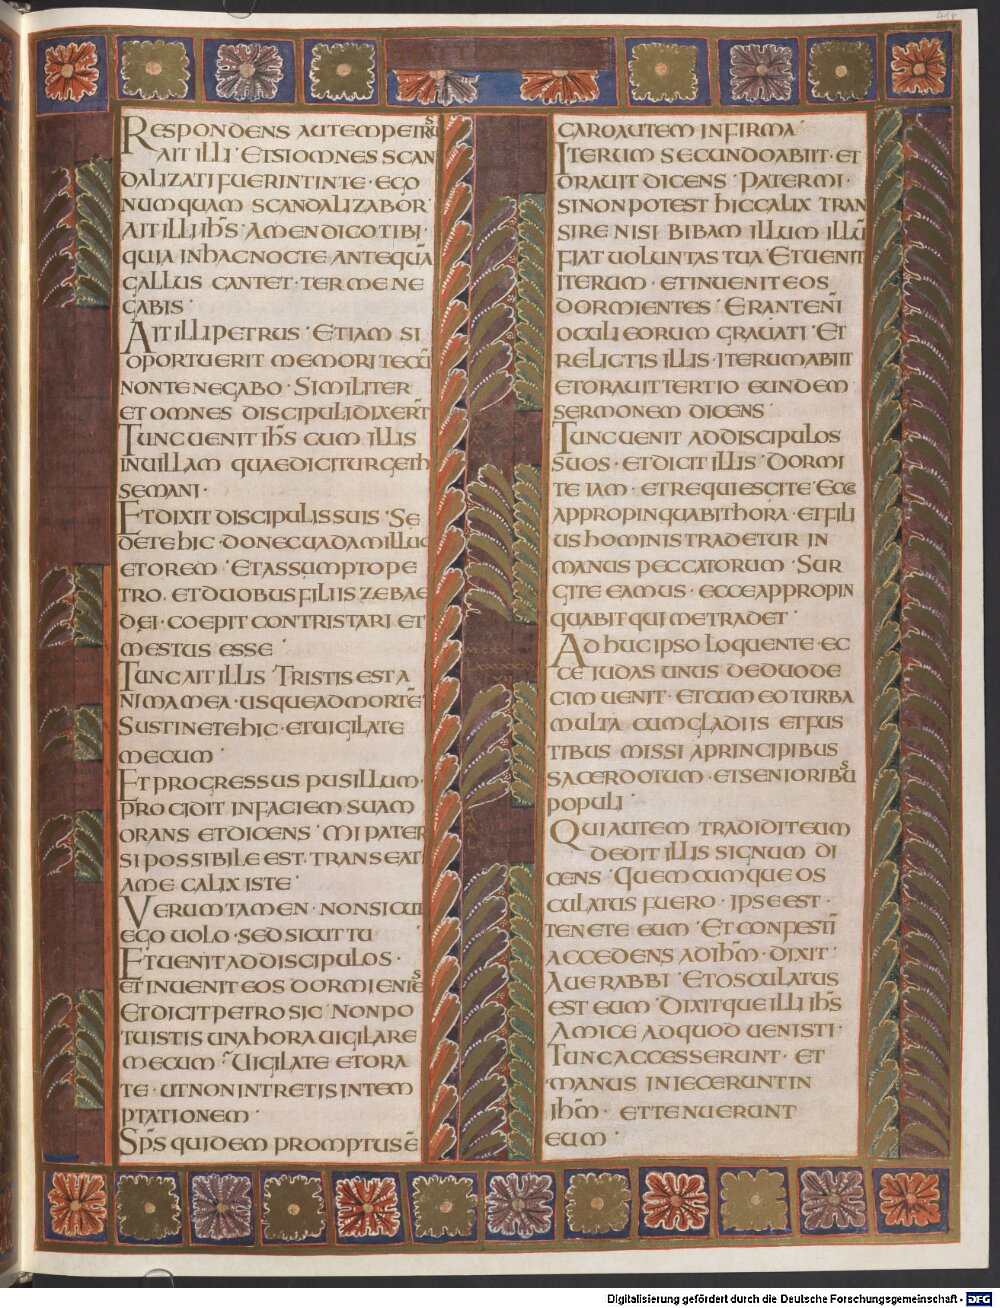 RESPONDENS AUTEM PETRUS
AIT ILLI · ET SI OMNES SCAN
DALIZATI FUERINT IN TE · EGO
NUMQUAM SCANDALIZABOR
AIT ILLI IHS̄ · AMEN DICO TIBI ·
QUIA IN HAC NOCTE ANTEQUĀ
GALLUS CANTET · TER ME NE
GABIS ·
AIT ILLI PETRUS · ETIAM SI
OPORTUERIT ME MORI TECŪ
NON TE NEGABO · SIMILITER
ET OMNES DISCIPULI DIXER̄T
TUNC UENIT IHS̄ CUM ILLIS
IN UILLAM QUAE DICITUR GETH
SEMANI ·
ET DIXIT DISCIPULIS SUIS · SE
DETE HIC · DONEC UADAM ILLUC
ET OREM · ET ASSUMPTO PE
TRO · ET DUOBUS FILIIS ZEBAE
DEI · COEPIT CONTRISTARI ET
MESTUS ESSE ·
TUNC AIT ILLIS · TRISTIS EST A
NIMA MEA · USQUE AD MORTĒ
SUSTINETE HIC · ET UIGILATE
MECUM ·
ET PROGRESSUS PUSILLUM ·
PROCIDIT IN FACIEM SUAM
ORANS ET DICENS · MI PATER
SI POSSIBILE EST · TRANSEAT
A ME CALIX ISTE ·
VERUM TAMEN · NON SICUT
EGO UOLO · SED SICUT TU
ET UENIT AD DISCIPULOS ·
ET INUENIT EOS DORMIENTES
ET DICIT PETRO SIC · NON PO
TUISTIS UNA HORA UIGILARE
MECUM · UIGILATE ET ORA
TE · UT NON INTRETIS IN TEM
PTATIONEM ·
SP̄S QUIDEM PROMPTUS Ē
CARO AUTEM INFIRMA ·
ITERUM SECUNDO ABIIT · ET
ORAUIT DICENS · PATER MI ·
SI NON POTEST HIC CALIX TRAN
SIRE NISI BIBAM ILLUM ILLŪ
FIAT UOLUNTAS TUA · ET UENIT
ITERUM · ET INUENIT EOS
DORMIENTES · ERANT ENĪ
OCULI EORUM GRAUATI · ET
RELICTIS ILLIS · ITERUM ABIIT
ET ORAUIT TERTIO EUNDEM
SERMONEM DICENS ·
TUNC UENIT AD DISCIPULOS
SUOS · ET DICIT ILLIS · DORMI
TE IAM · ET REQUIESCITE · ECCE
APPROPINQUABIT HORA · ET FILI
US HOMINIS TRADETUR IN
MANUS PECCATORUM · SUR
GITE EAMUS · ECCE APPROPIN
QUABIT QUI ME TRADET ·
ADHUC IPSO LOQUENTE · EC
CE IUDAS UNUS DE DUODE
CIM UENIT · ET CUM EO TURBA
MULTA CUM GLADIIS ET FUS
TIBUS MISSI A PRINCIPIBUS
SACERDOTUM · ET SENIORIBUS
POPULI ·
QUI AUTEM TRADIDIT EUM
DEDIT ILLIS SIGNUM DI
CENS · QUEMCUMQUE OS
CULATUS FUERO · IPSE EST ·
TENETE EUM · ET CONFESTĪ
ACCEDENS AD IHM̄ · DIXIT ·
AUE RABBI · ET OSCULATUS
EST EUM · DIXITQUE ILLI IHS̄
AMICE AD QUOD UENISTI ·
TUNC ACCESSERUNT · ET
MANUS INIECERUNT IN
IHM̄ · ET TENUERUNT
EUM ·
Digitalisierung gefördert durch die Deutsche Forschungsgemeinschaft - DFG